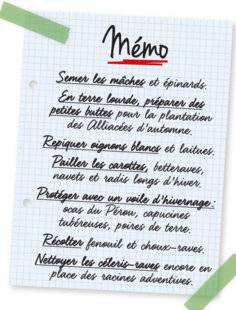 Mémo
Semer les mâches et épinards.
En terre lourde, préparer des
petites buttes pour la plantation
des Alliacées d'automne.
Repiquer oignons blancs et laitues.
Pailler les carottes, betteraves,
navets et radis longs d'hiver.
Protéger avec un voile d'hivernage :
ocas du Pérou, capucines
tubéreuses, poires de terre.
Récolter fenouil et choux-raves.
Nettoyer les céleris-raves encore en
place des racines adventives.